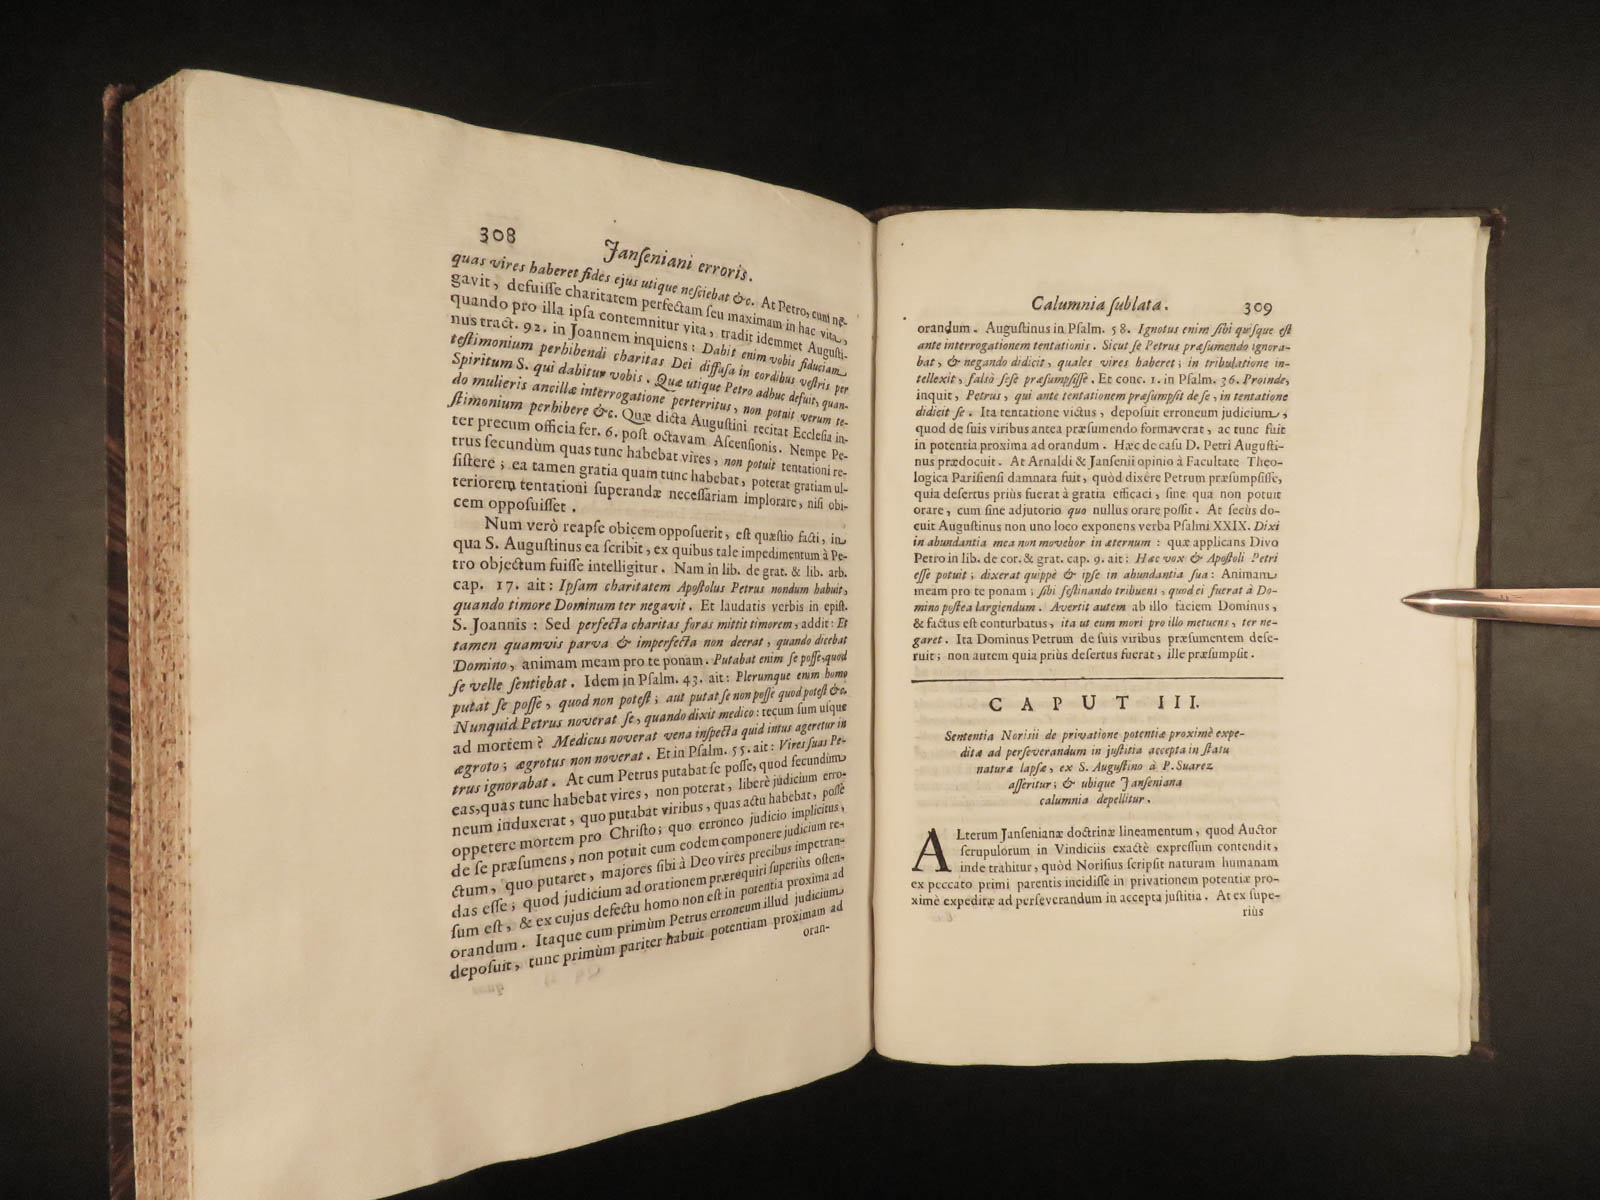 308
Janſeniani erroris.
quas vires haberet fides ejus utique neſciebat &c. At Petro, cum ne-
gavit, defuiſſe charitatem perfectam ſeu maximam in hac vita,
quando pro illa ipſa contemnitur vita, tradit idemmet Auguſti-
nus tract. 92. in Joannem inquiens: Dabit enim vobis fiduciam
teſtimonium perhibendi charitas Dei diffuſa in cordibus veſtris per
Spiritum S. qui dabitur vobis. Quæ utique Petro adhuc defuit, quan-
do mulieris ancillæ interrogatione perterritus, non potuit verum te-
ſtimonium perhibere &c. Quæ dicta Auguſtini recitat Eccleſia in-
ter precum officia fer. 6. poſt octavam Aſcenſionis. Nempe Pe-
trus ſecundùm quas tunc habebat vires, non potuit tentationi re-
ſiſtere; ea tamen gratia quam tunc habebat, poterat gratiam ul-
teriorem tentationi ſuperandæ neceſſariam implorare, niſi obi-
cem oppoſuiſſet.
Num verò reapſe obicem oppoſuerit, eſt quæſtio facti, in
qua S. Auguſtinus ea ſcribit, ex quibus tale impedimentum à Pe-
tro objectum fuiſſe intelligitur. Nam in lib. de grat. & lib. arb.
cap. 17. ait: Ipſam charitatem Apoſtolus Petrus nondum habuit,
quando timore Dominum ter negavit. Et laudatis verbis in epiſt.
S. Joannis: Sed perfecta charitas foras mittit timorem, addit: Et
tamen quamvis parva & imperfecta non deerat, quando dicebat
Domino, animam meam pro te ponam. Putabat enim ſe poſſe, quod
ſe velle ſentiebat. Idem in Pſalm. 43. ait: Plerumque enim homo
putat ſe poſſe, quod non poteſt; aut putat ſe non poſſe quod poteſt &c.
Nunquid Petrus noverat ſe, quando dixit medico: tecum ſum uſque
ad mortem? Medicus noverat vena inſpecta quid intus ageretur in
ægroto; ægrotus non noverat. Et in Pſalm. 55. ait: Vires ſuas Pe-
trus ignorabat. At cum Petrus putabat ſe poſſe, quod ſecundùm
eas, quas tunc habebat vires, non poterat, liberè judicium erro-
neum induxerat, quo putabat viribus, quas actu habebat, poſſe
oppetere mortem pro Chriſto; quo erroneo judicio implicitus,
de ſe præſumens, non potuit cum eodem componere judicium re-
ctum, quo putaret, majores ſibi à Deo vires precibus impetran-
das eſſe; quod judicium ad orationem prærequiri ſuperiùs oſten-
ſum eſt, & ex cujus defectu homo non eſt in potentia proxima ad
orandum. Itaque cum primùm Petrus erroneum illud judicium
depoſuit, tunc primùm pariter habuit potentiam proximam ad
oran-
Calumnia ſublata.
309
orandum. Auguſtinus in Pſalm. 58. Ignotus enim ſibi quiſque eſt
ante interrogationem tentationis. Sicut ſe Petrus præſumendo ignora-
bat, & negando didicit, quales vires haberet; in tribulatione in-
tellexit, falsò ſeſe præſumpſiſſe. Et conc. 1. in Pſalm. 36. Proinde,
inquit, Petrus, qui ante tentationem præſumpſit de ſe, in tentatione
didicit ſe. Ita tentatione victus, depoſuit erroneum judicium,
quod de ſuis viribus antea præſumendo formaverat, ac tunc fuit
in potentia proxima ad orandum. Hæc de caſu D. Petri Auguſti-
nus prædocuit. At Arnaldi & Janſenii opinio à Facultate Theo-
logica Pariſienſi damnata fuit, quòd dixêre Petrum præſumpſiſſe,
quia deſertus priùs fuerat à gratia efficaci, ſine qua non potuit
orare, cum ſine adjutorio quo nullus orare poſſit. At ſecùs do-
cuit Auguſtinus non uno loco exponens verba Pſalmi XXIX. Dixi
in abundantia mea non movebor in æternum: quæ applicans Divo
Petro in lib. de cor. & grat. cap. 9. ait: Hæc vox & Apoſtoli Petri
eſſe potuit; dixerat quippè & ipſe in abundantia ſua: Animam
meam pro te ponam; ſibi feſtinando tribuens, quod ei fuerat à Do-
mino poſtea largiendum. Avertit autem ab illo faciem Dominus,
& factus eſt conturbatus, ita ut eum mori pro illo metuens, ter ne-
garet. Ita Dominus Petrum de ſuis viribus præſumentem deſe-
ruit; non autem quia priùs deſertus fuerat, ille præſumpſit.
CAPUT III.
Sententia Noriſii de privatione potentiæ proximè expe-
ditæ ad perſeverandum in juſtitia accepta in ſtatu
naturæ lapſæ, ex S. Auguſtino à P. Suarez
aſſeritur; & ubique Janſeniana
calumnia depellitur.
ALterum Janſenianæ doctrinæ lineamentum, quod Auctor
ſcrupulorum in Vindiciis exactè expreſſum contendit,
inde trahitur, quòd Noriſius ſcripſit naturam humanam
ex peccato primi parentis incidiſſe in privationem potentiæ pro-
ximè expeditæ ad perſeverandum in accepta juſtitia. At ex ſupe-
riùs